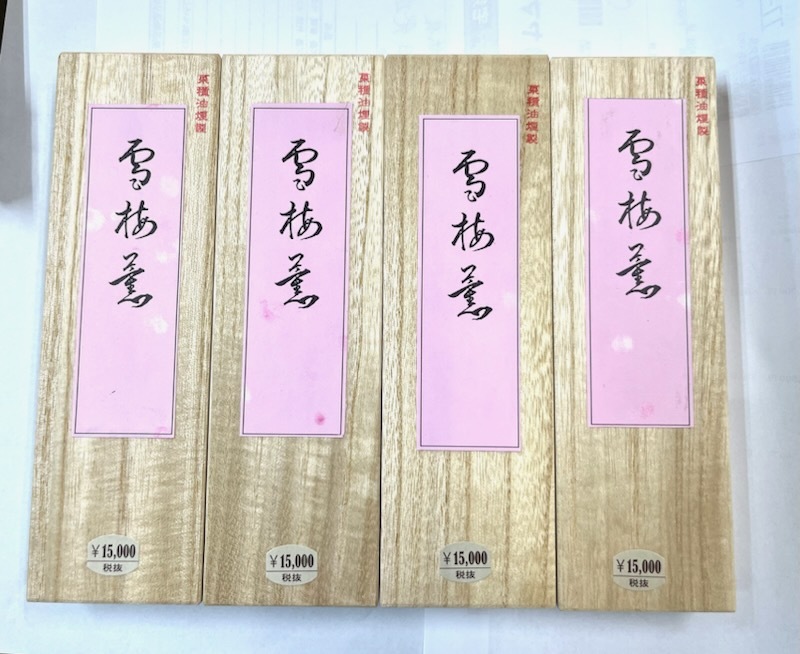 菜種油煙製
雪梅薫
¥15,000
税抜
菜種油煙製
雪梅薫
¥15,000
税抜
菜種油煙製
雪梅薫
¥15,000
税抜
菜種油煙製
雪梅薫
¥15,000
税抜